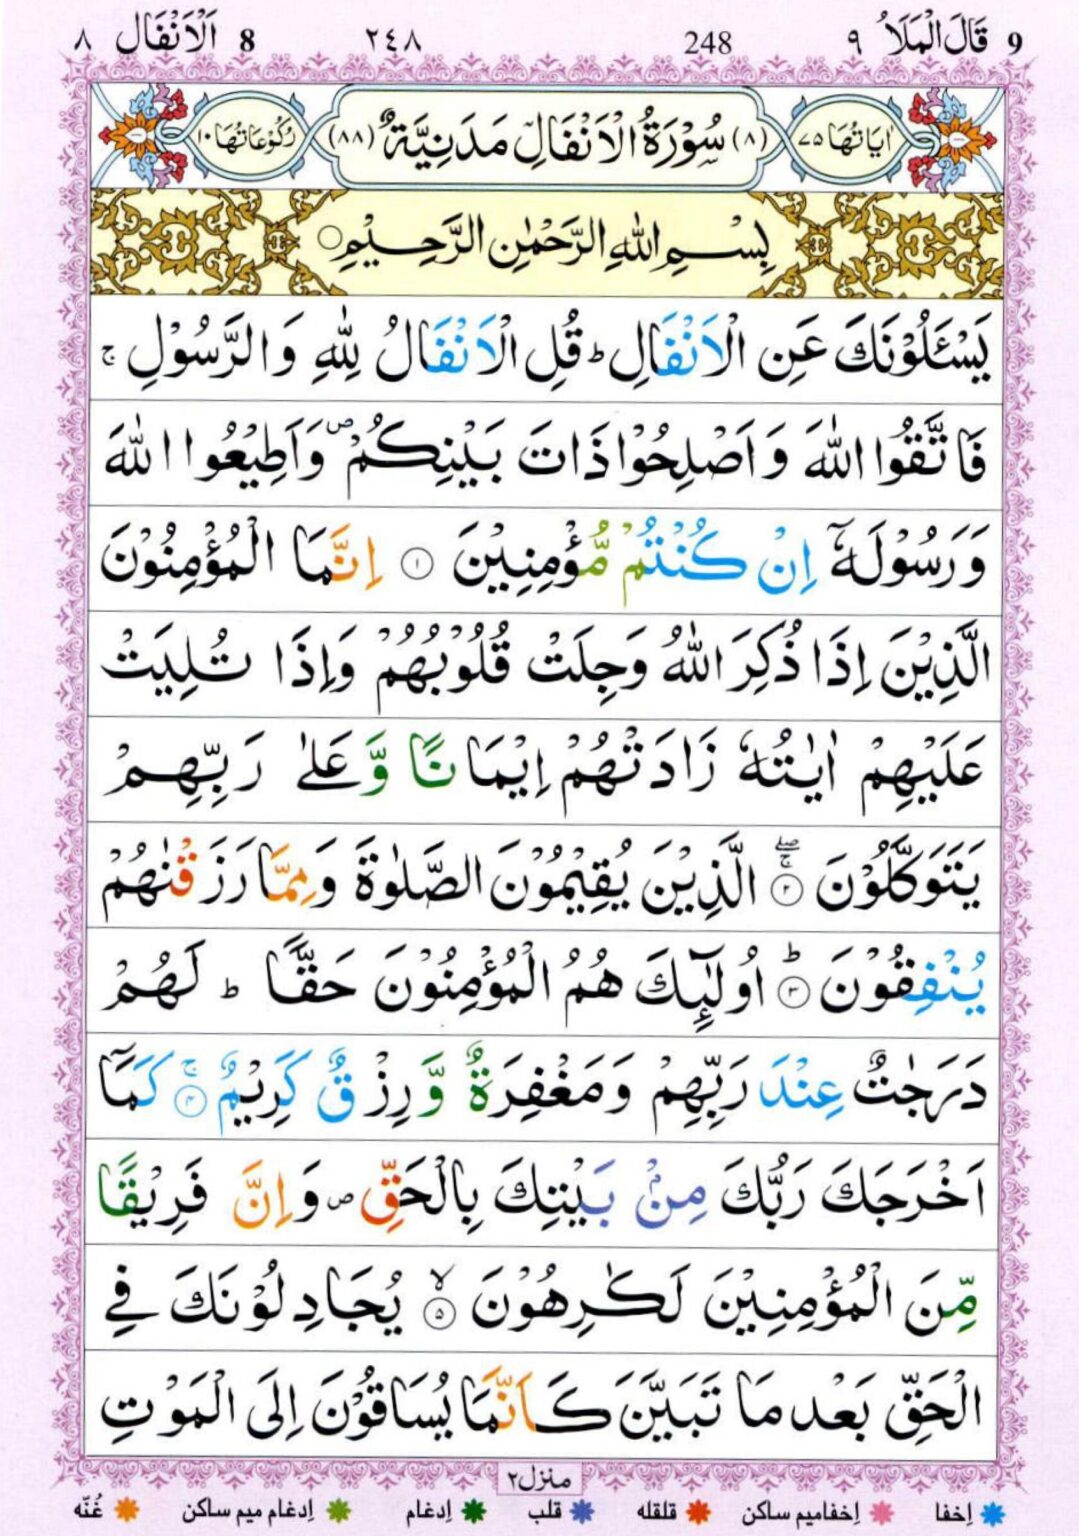 9 قَالَ الْمَلَاُ ٩ 248 ٢٤٨ 8 اَلْاَنْفَال ٨
اٰيَاتُهَا ٧٥ (٨) سُوْرَةُ الْاَنْفَالِ مَدَنِيَّةٌ (٨٨) رُكُوْعَاتُهَا ١٠
بِسْمِ اللّٰهِ الرَّحْمٰنِ الرَّحِيْمِ ○
يَسْـَٔلُوْنَكَ عَنِ الْاَنْفَالِ ؕ قُلِ الْاَنْفَالُ لِلّٰهِ وَالرَّسُوْلِ ۚ
فَاتَّقُوا اللّٰهَ وَاَصْلِحُوْا ذَاتَ بَيْنِكُمْ ۪ وَاَطِيْعُوا اللّٰهَ
وَرَسُوْلَهٗۤ اِنْ كُنْتُمْ مُّؤْمِنِيْنَ ۝١ اِنَّمَا الْمُؤْمِنُوْنَ
الَّذِيْنَ اِذَا ذُكِرَ اللّٰهُ وَجِلَتْ قُلُوْبُهُمْ وَاِذَا تُلِيَتْ
عَلَيْهِمْ اٰيٰتُهٗ زَادَتْهُمْ اِيْمَانًا وَّعَلٰى رَبِّهِمْ
يَتَوَكَّلُوْنَ ۝٢ۖۚ الَّذِيْنَ يُقِيْمُوْنَ الصَّلٰوةَ وَمِمَّا رَزَقْنٰهُمْ
يُنْفِقُوْنَ ۝٣ؕ اُولٰٓئِكَ هُمُ الْمُؤْمِنُوْنَ حَقًّا ؕ لَهُمْ
دَرَجٰتٌ عِنْدَ رَبِّهِمْ وَمَغْفِرَةٌ وَّرِزْقٌ كَرِيْمٌ ۝٤ۚ كَمَاۤ
اَخْرَجَكَ رَبُّكَ مِنْۢ بَيْتِكَ بِالْحَقِّ ۪ وَاِنَّ فَرِيْقًا
مِّنَ الْمُؤْمِنِيْنَ لَكٰرِهُوْنَ ۝٥ۙ يُجَادِلُوْنَكَ فِي
الْحَقِّ بَعْدَ مَا تَبَيَّنَ كَاَنَّمَا يُسَاقُوْنَ اِلَى الْمَوْتِ
منزل٢
اِخفا اِخفامیم ساکن قلقله قلب اِدغام اِدغام میم ساکن غُنّه